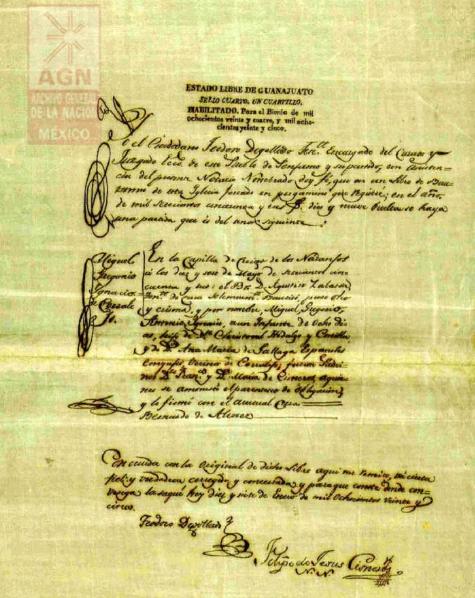 AGN
ARCHIVO GENERAL
DE LA NACIÓN
MÉXICO
ESTADO LIBRE DE GUANAJUATO
SELLO CUARTO, UN CUARTILLO.
HABILITADO. Para el Bienio de mil
ochocientos veinte y cuatro, y mil ocho-
cientos veinte y cinco.
El Ciudadano Teodoro Degollado Encargado del Curato y
Juzgado de este Pueblo de Penjamo y
Notario Nombrado doy fe, que en un Libro de
de esta Iglesia forrado en pergamino que en el año
de mil setecientos cincuenta y en
una partida que es del tenor siguiente:
Miguel
Gregorio
Ignacio
de Corrale
jo.
En la Capilla de Cuitzeo de los Naranjos
á los diez y seis de Mayo de setecientos cin-
cuenta y tres el Agustin Salazar
de Cura solemnemente puso oleo
y crisma, y por nombre, Miguel Gregorio,
Antonio Ignacio, a un Infante de ocho dias,
hijo de Dn. Christoval Hidalgo y Costilla
y Da. Ana Maria de Gallaga Españoles
Conyuges, Vecinos de Corralejo, fueron Padri-
nos y Da. Maria de Cisneros, a quienes
se amonestó el parentesco de obligacion,
y lo firmé con el actual Cura
Bernardo de Alcocer
Concuerda con la Original de dicho Libro a que me remito, va cierta
fiel y verdadera corregida y concertada, y para que conste donde con-
venga la saqué hoy diez y siete de Enero de mil Ochocientos veinte y
cinco.
Teodoro Degollado
Felipe de Jesus Cisneros
N. N.